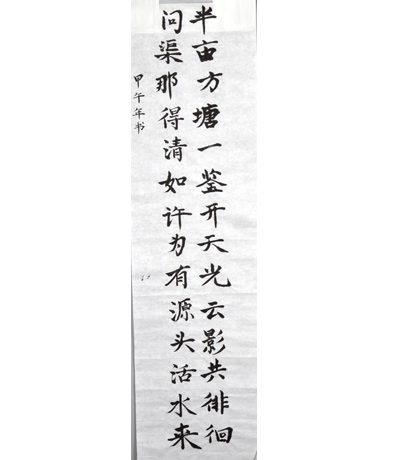 半亩方塘一鉴开天光云影共徘徊
问渠那得清如许为有源头活水来
甲午年书